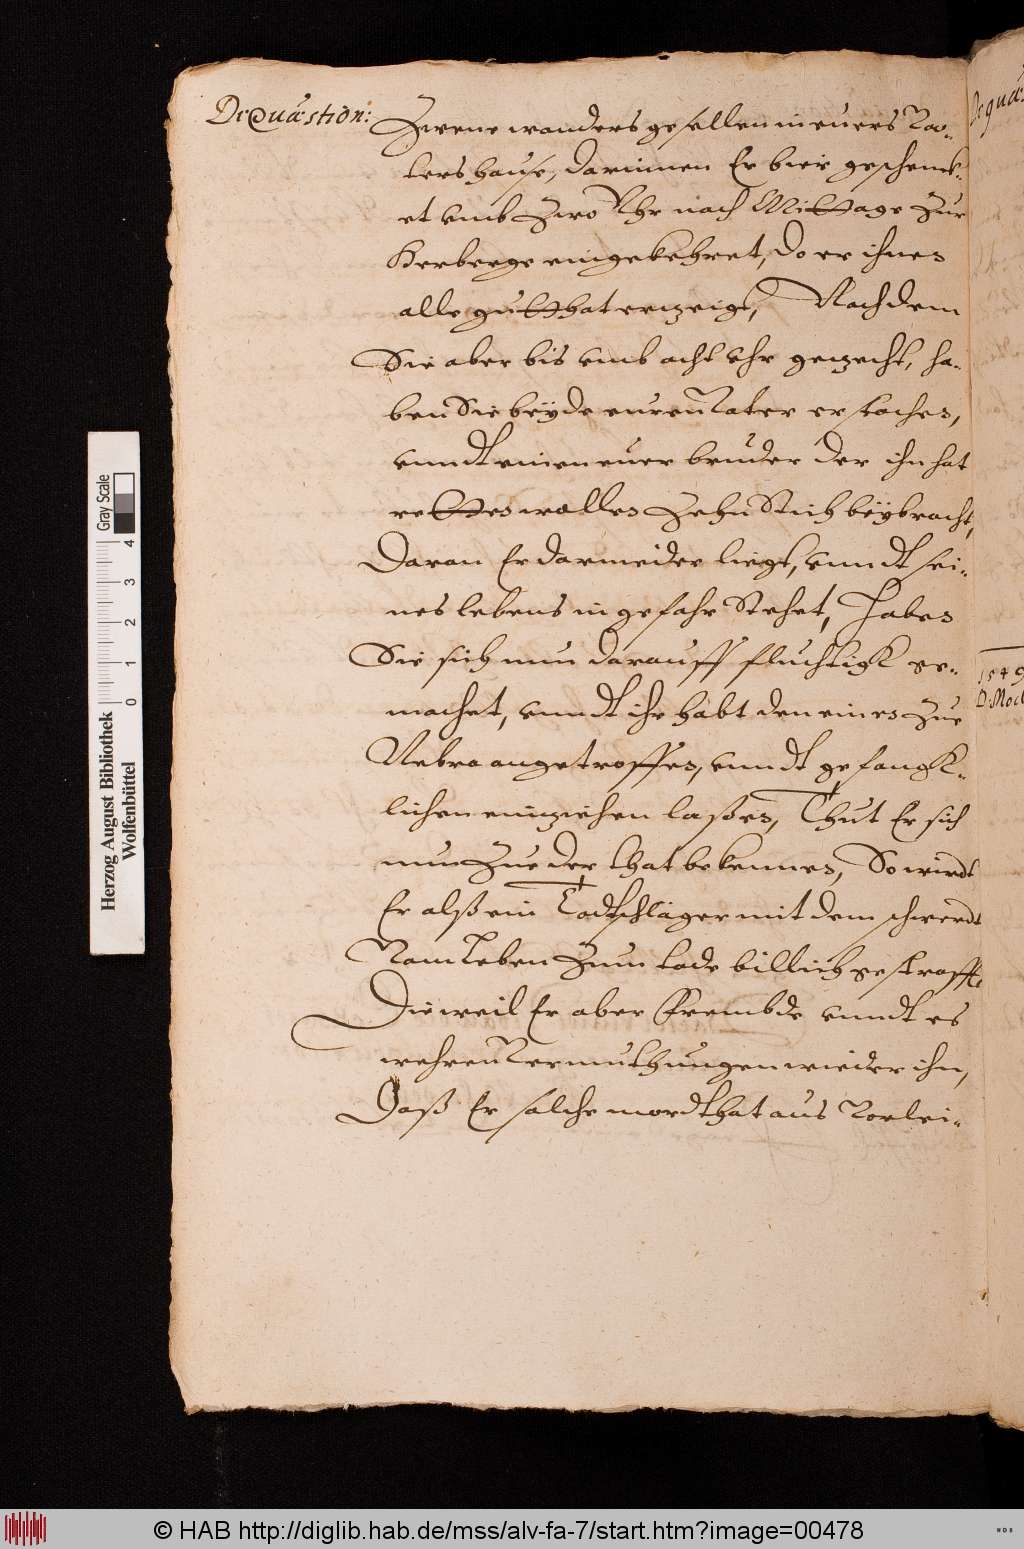 De Quæstion:
Zwene wandersgesellen in euers Va-
ters hause, darinnen Er bier geschenk-
et umb Zwo Uhr nach Mittage Zur
Herberge eingekehret, do er ihnen
alle gutthat erzeigt, Nachdem
Sie aber bis umb acht uhr gezecht, ha-
ben Sie beyde euren Vater erstochen,
unndt einen euer bruder der ihn hat
retten wollen Zehn Stich beybracht,
Daran Er darnieder liegt, unndt sei-
nes lebens in gefahr Stehet, Haben
Sie sich nun darauff fluchtigk ge-
machet, unndt ihr habt den einen Zue
Nebra angetroffen, unndt gefangk-
lichen einziehen laßen, Thut Er sich
nun Zue der that bekennen, So wirdt
Er alß ein Todtschläger mit dem schwerdt
Vom Leben Zum tode billich gestrafft
Dieweil Er aber frembde unndt es
wehren Vermuthungen wieder ihn,
Daß Er solche mordthat aus Vorlei-
1549
Gray Scale
0 1 2 3 4
Herzog August Bibliothek
Wolfenbüttel
© HAB http://diglib.hab.de/mss/alv-fa-7/start.htm?image=00478